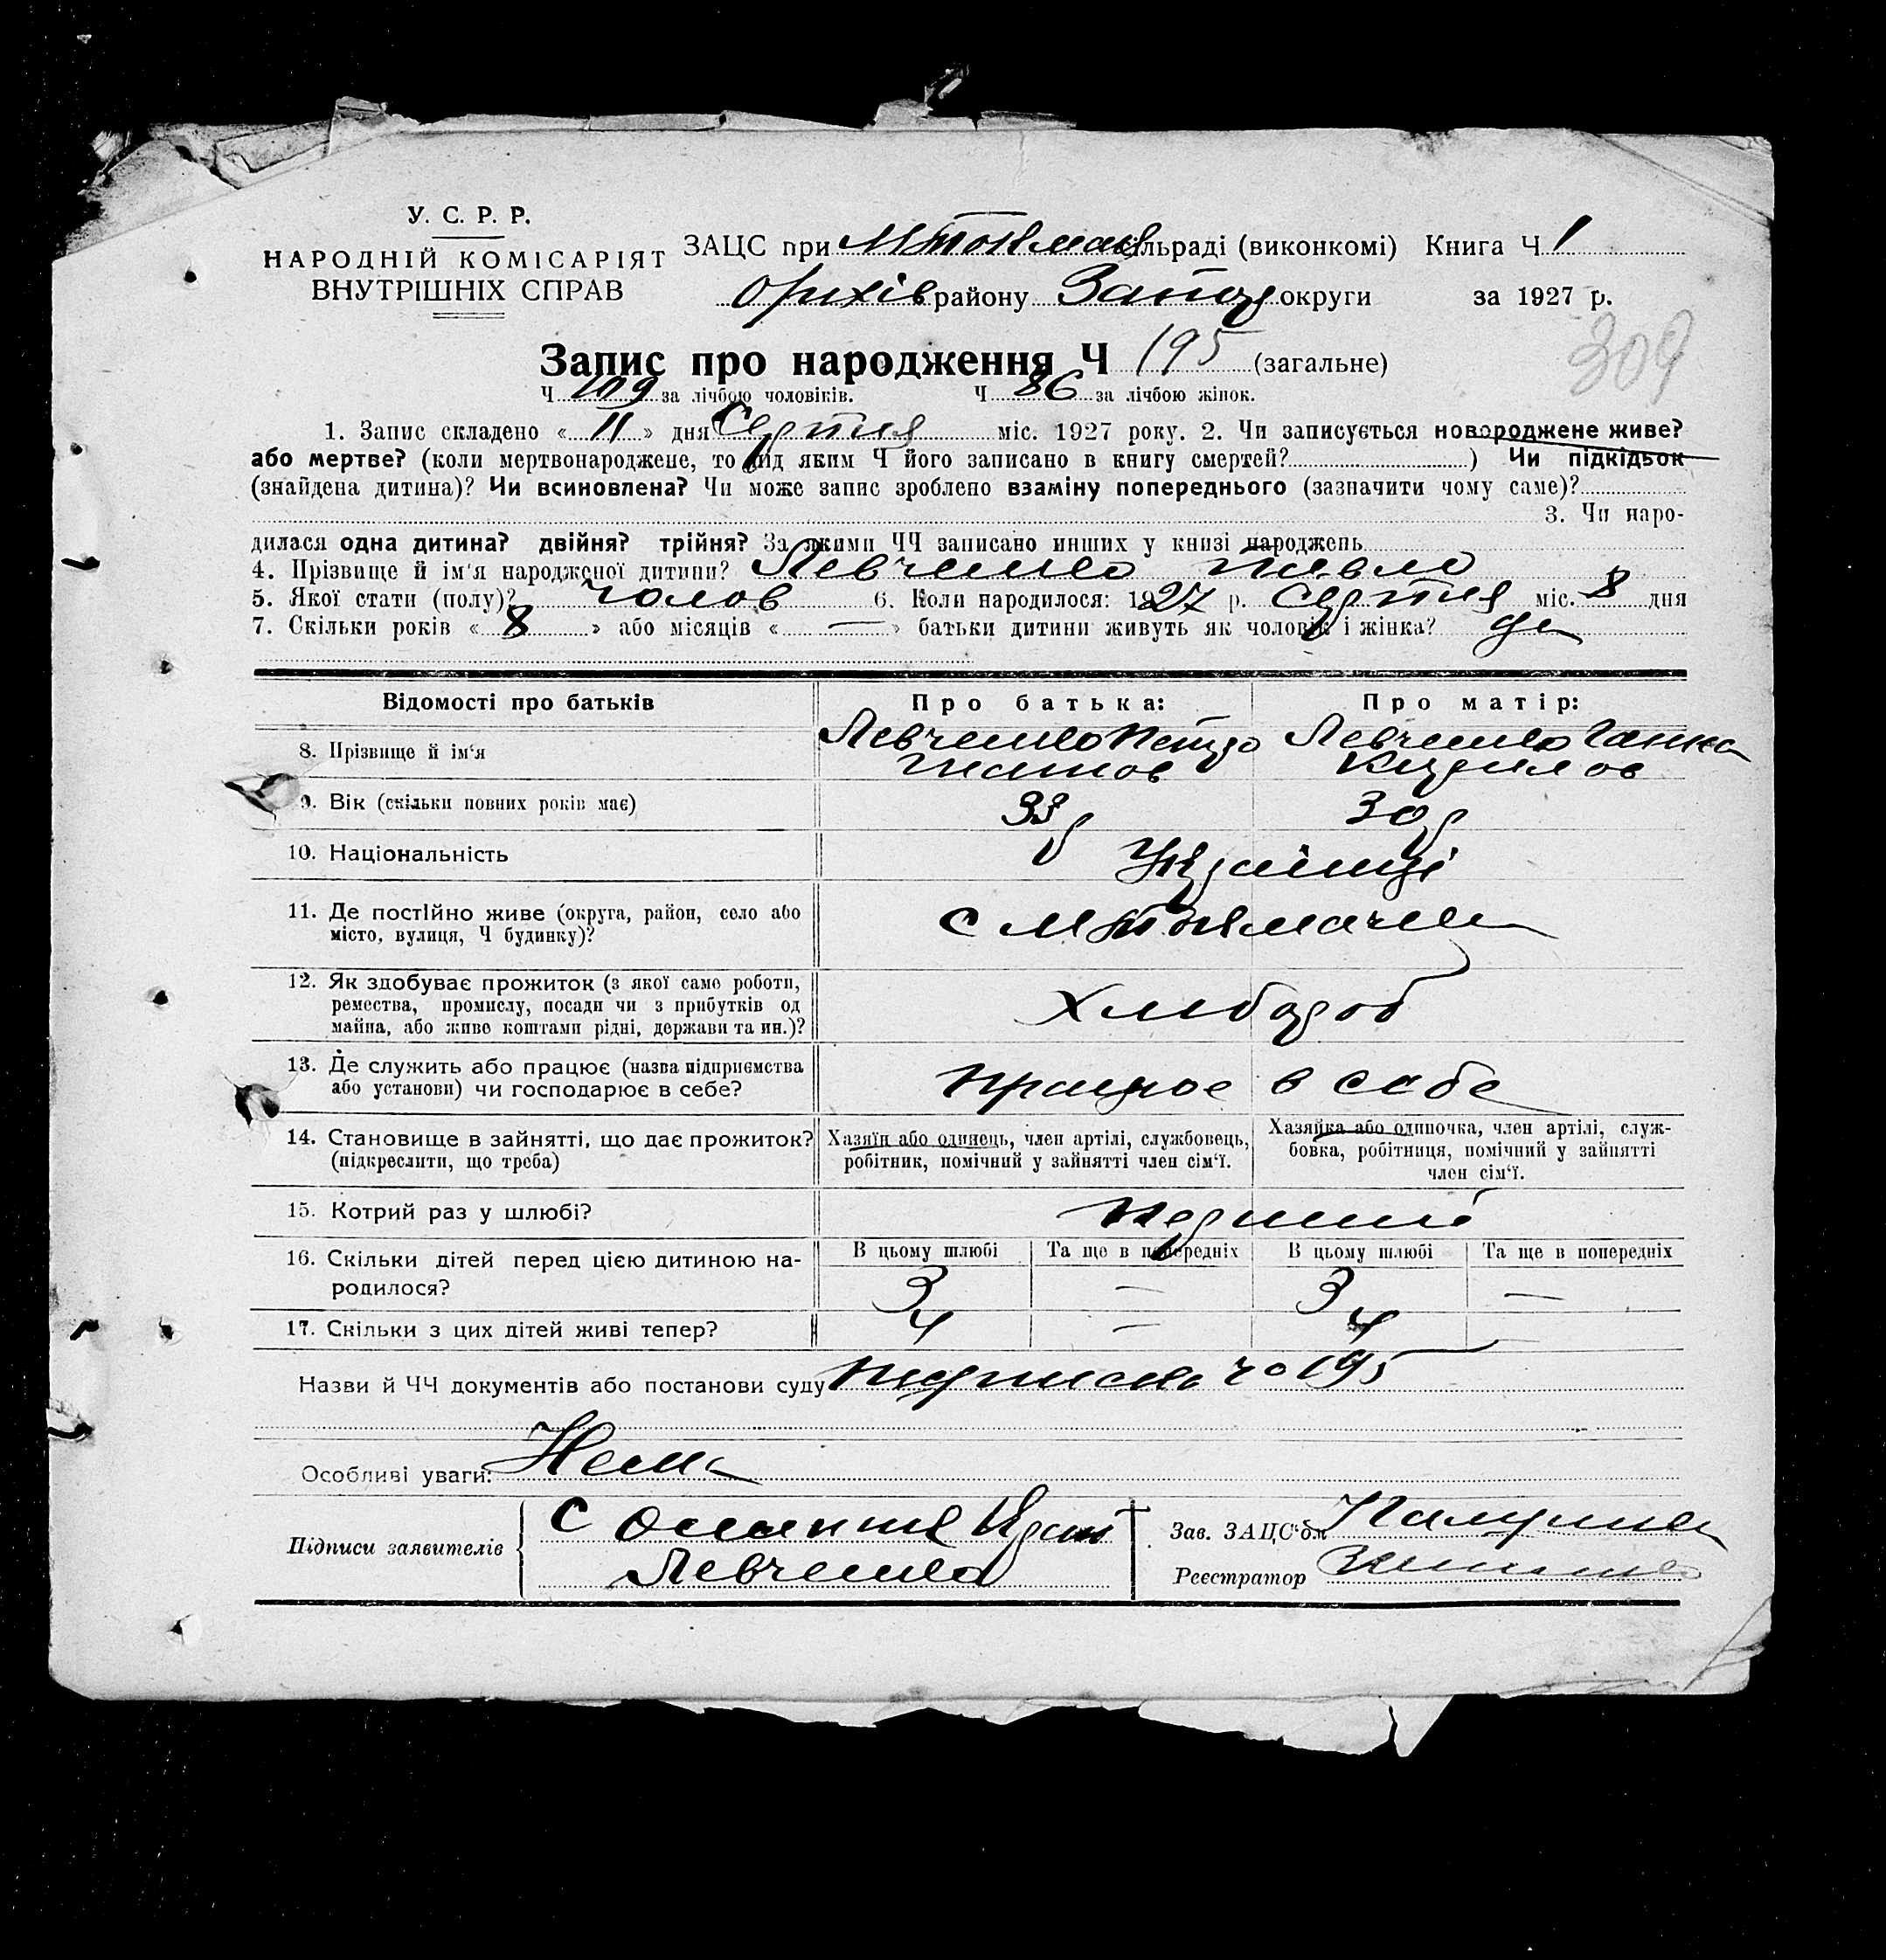 У. С. Р. Р.
НАРОДНІЙ КОМІСАРІЯТ
ВНУТРІШНІХ СПРАВ
ЗАЦС при МТокмац сільраді (виконкомі) Книга Ч 1
Оріхів району Запор округи за 1927 р.
309
Запис про народження Ч 195 (загальне)
Ч 109 за лічбою чоловіків. Ч 86 за лічбою жінок.
1. Запис складено « 11 » дня Серпня міс. 1927 року. 2. Чи записується новороджене живе?
або мертве? (коли мертвонароджене, то під яким Ч його записано в книгу смертей? ) Чи підкідьок
(знайдена дитина)? Чи всиновлена? Чи може запис зроблено взаміну попереднього (зазначити чому саме)?
3. Чи наро-
дилася одна дитина? двійня? трійня? За якими ЧЧ записано инших у книзі народжень
4. Прізвище й ім'я народженої дитини? Левченко Павло
5. Якої стати (полу)? Чолов 6. Коли народилося: 1927 р. Серпня міс. 8 дня
7. Скільки років « 8 » або місяців « — » батьки дитини живуть як чоловік і жінка? Да
Відомості про батьків Про батька: Про матір:
8. Прізвище й ім'я Левченко Петро Левченко Ганна
Кирилов
9. Вік (скільки повних років має) 33 р 30 р
10. Національність Українці
11. Де постійно живе (округа, район, село або
місто, вулиця, Ч будинку)? с МТокмачці
12. Як здобуває прожиток (з якої саме роботи,
ремества, промислу, посади чи з прибутків од
майна, або живе коштами рідні, держави та ин.)? Хлібороб
13. Де служить або працює (назва підприємства
або установи) чи господарює в себе? Працює в себе
14. Становище в зайнятті, що дає прожиток?
(підкреслити, що треба)
Хазяїн або одинець, член артілі, службовець,
робітник, помічний у зайнятті член сім'ї.
Хазяйка або одиночка, член артілі, служ-
бовка, робітниця, помічний у зайнятті
член сім'ї.
15. Котрий раз у шлюбі? Перший
16. Скільки дітей перед цією дитиною на-
родилося?
В цьому шлюбі Та ще в попередніх В цьому шлюбі Та ще в попередніх
3 — 3 —
17. Скільки з цих дітей живі тепер? 4 — 4 —
Назви й ЧЧ документів або постанови суду 195
Особливі уваги: Нема
Підписи заявителів
Левченко
Зав. ЗАЦС'ом
Реєстратор